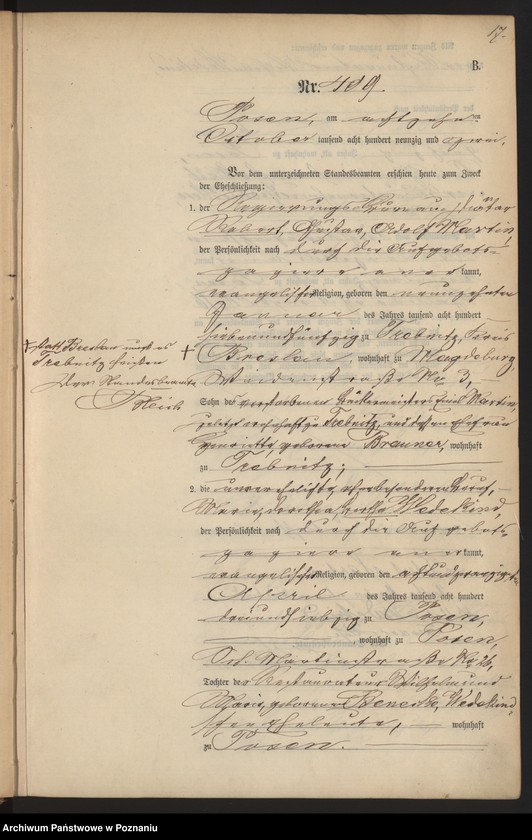 17.
B.
Nr. 489.
Posen, am achtzehnten
October tausend acht hundert neunzig und zwei.
Vor dem unterzeichneten Standesbeamten erschien heute zum Zweck
der Eheschließung:
1. der Regierungs-
Robert, Gustav, Adolf Martin,
der Persönlichkeit nach durch die Aufgebots-
papiere anerkannt,
evangelischer Religion, geboren den neunzehnten
Januar des Jahres tausend acht hundert
zu Trebnitz, Kreis
Breslau, wohnhaft zu Magdeburg,
straße No 3,
Sohn des verstorbenen Emil Martin,
zuletzt wohnhaft zu Trebnitz, und dessen Ehefrau
Henriette, geborene Brauner, wohnhaft
zu Trebnitz;
2. die unverehelichte
Marie, Dorothea, Wedekind,
der Persönlichkeit nach durch die Aufgebots-
papiere anerkannt,
evangelischer Religion, geboren den achtundzwanzigsten
April des Jahres tausend acht hundert
dreiundsiebzig zu Posen,
wohnhaft zu Posen,
Sct. Martinstraße No 26,
Tochter des Restaurateur Wilhelm und
Marie, geborene Benecke, Wedekind-
schen Eheleute, wohnhaft
zu Posen.
† statt Breslau muß es
Trebnitz heißen
Der Standesbeamte
Archiwum Państwowe w Poznaniu